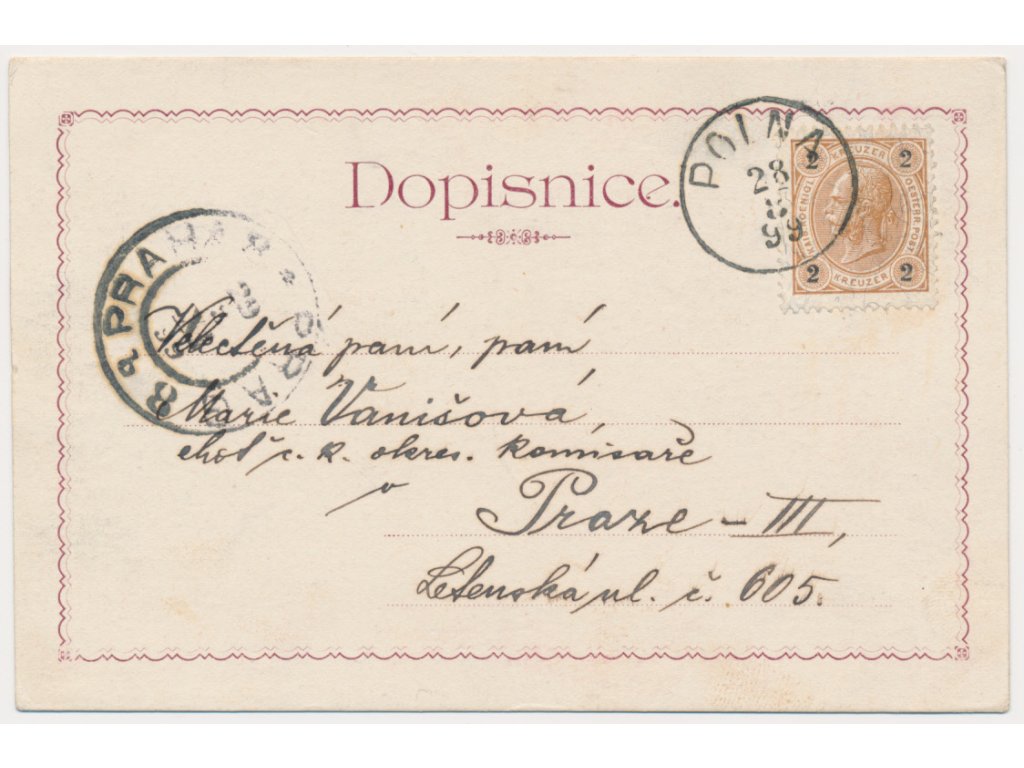 Dopisnice.
POLNA
28
8
99
2 KREUZER 2
KAIS. KOENIGL. OESTERR. POST
2 KREUZER 2
PRAHA
PRAG
8
Velectěná paní, paní
Marie Vanišová,
choť c. k. okres. komisaře
v
Praze – III,
Letenská ul. č. 605.